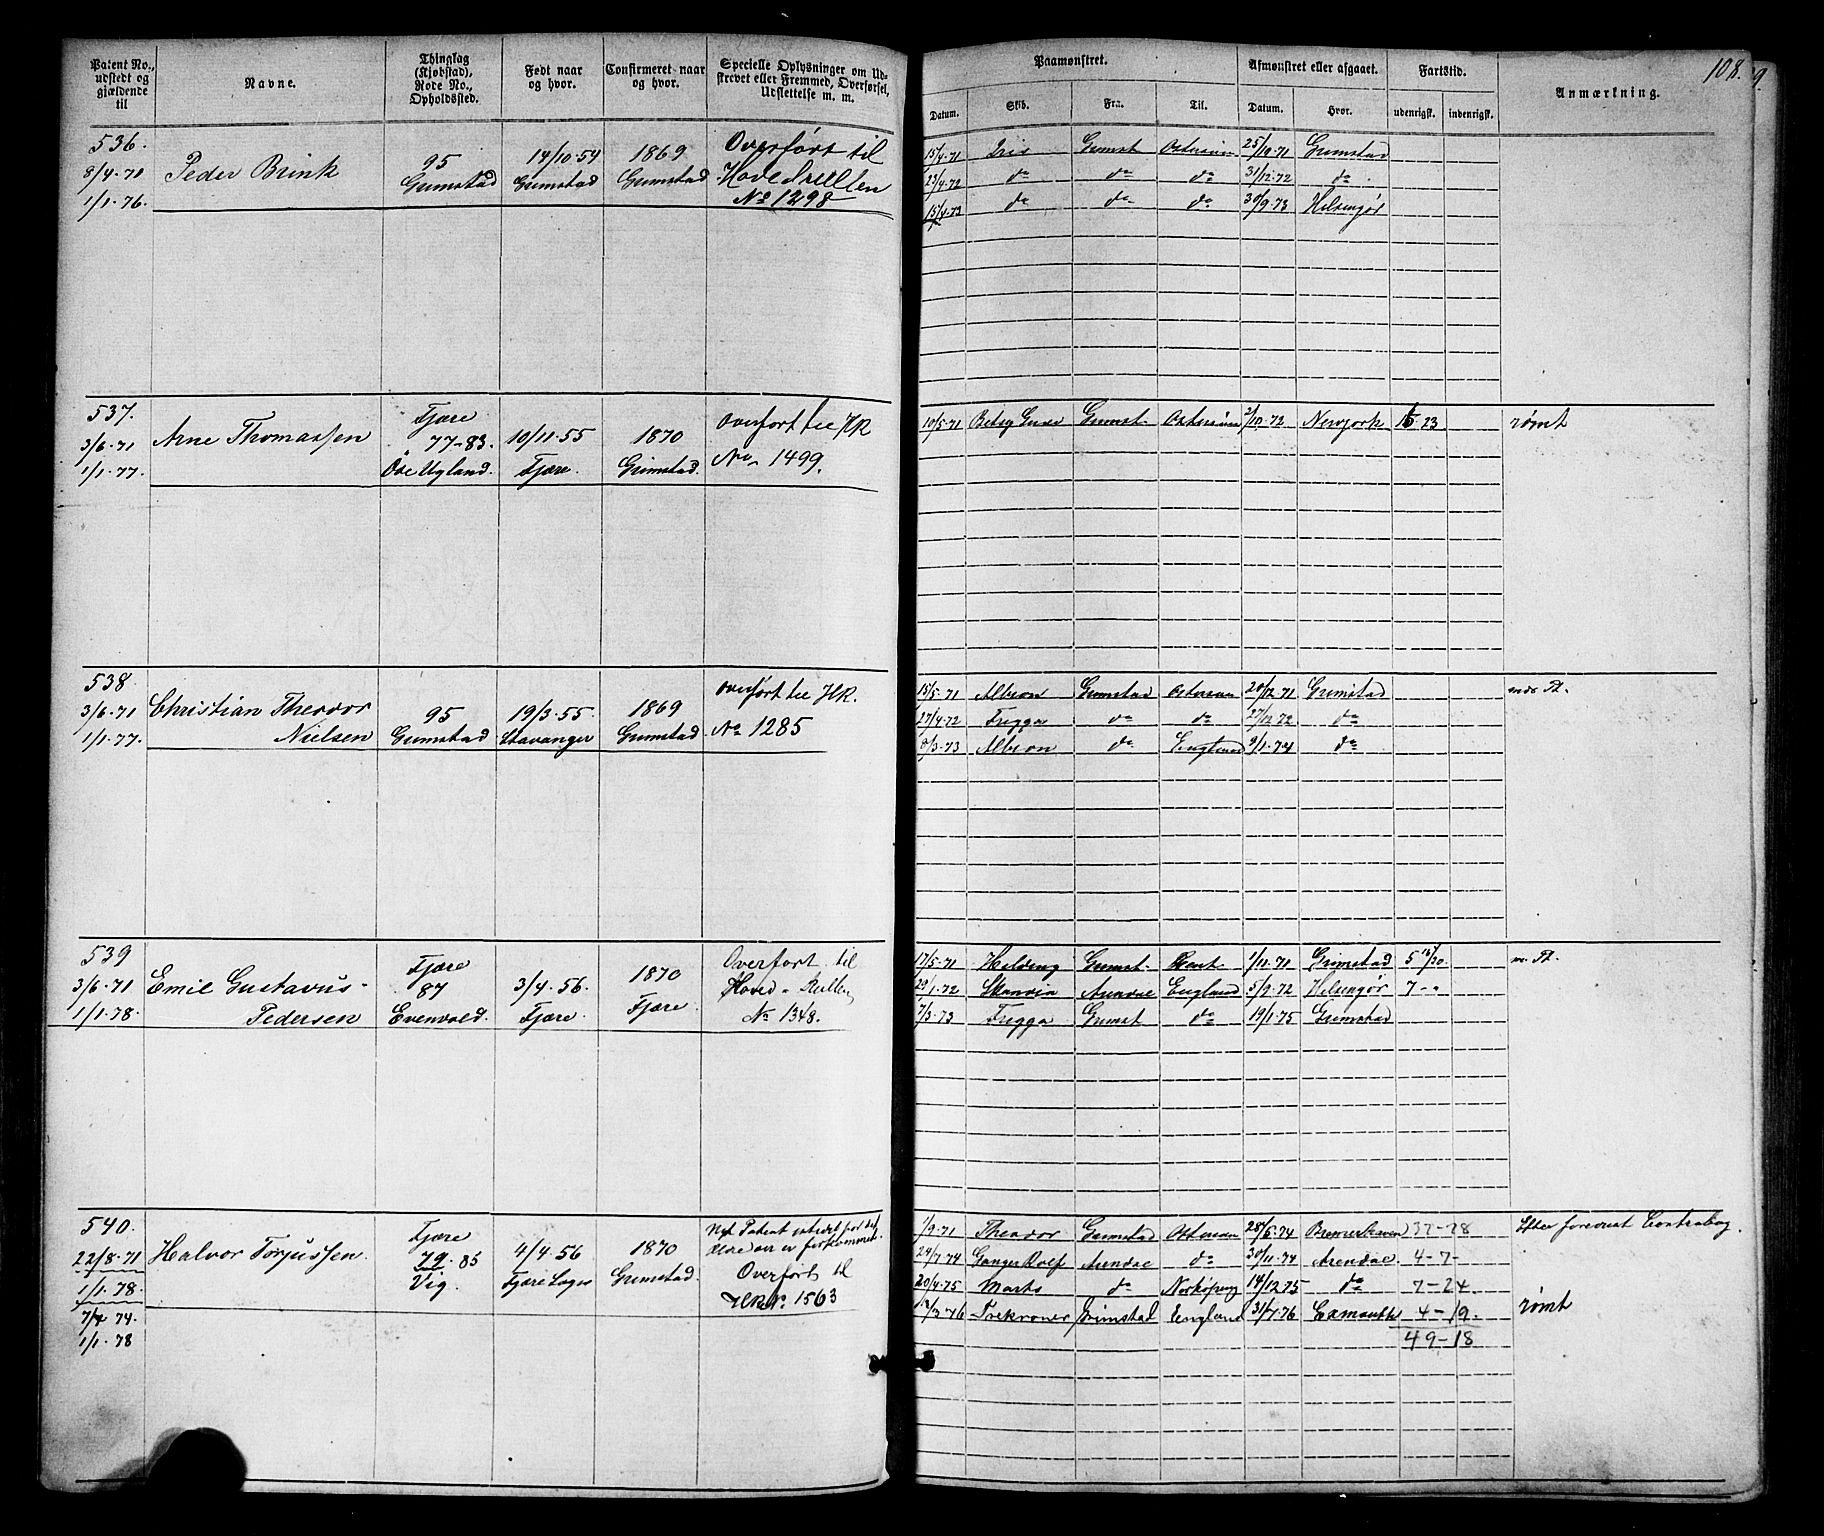 Patent No., udstedt og gjældende til
Navne.
Thinglag (Kjøbstad), Rode No., Opholdssted.
Født naar og hvor.
Confirmeret naar og hvor.
Specielle Oplysninger om Udskrevet eller Fremmed, Overførsel, Udslettelse m. m.
Paamønstret.
Datum. Skib. Fra. Til.
Afmønstret eller afgaaet.
Datum. Hvor.
Fartstid.
udenrigsk. indenrigsk.
Anmærkning.
108.
9.
536.
8/4-71
1/1-76.
Peder Brink
95
Grimstad
14/10-54
Grimstad
1869
Grimstad
Overført til
Hovedrullen
No 1298
15/4-71 Iris Grimst Østersøen 25/10-71 Grimstad
23/4-72 do do do 31/12-72 do
15/4-73 do do do 30/9-73 Helsingør
537.
3/6-71
1/1-77.
Arne Thomassen
Fjære
77-83.
Øve Ugland.
10/11-55
Fjære.
1870
Grimstad.
overført til HR
No 1499.
10/5-71 Grimst. Østersøen 2/10-72 Newyork 16 23 rømt
538
3/6-71
1/1-77.
Christian Theodor
Nielsen
95
Grimstad
19/3-55.
Stavanger
1869
Grimstad
overført til HR.
No 1285
15/5-71 Albion Grimstad Østersøen 20/12-71 Grimstad
27/4-72 Frigga do do 27/12-72 do
8/3-73 Albion do England 9/1-74 do
539
3/6-71
1/1-78.
Emil Gustavus
Pedersen
Fjære
87
Evenvold.
3/4-56.
Fjære.
1870
Fjære.
Overført til
Hoved-Rullen
No 1348.
17/5-71 Grimst. 1/10-71 Grimstad 5 13/30
29/1-72 Skanvia Arendal England 5/9-72 Helsingør 7-"
7/3-73 Frigga Grimst do 19/1-75 Grimstad
540.
22/8-71
1/1-78.
7/4 74.
1/1-78
Halvor Torjussen.
Fjære
79. 85
Vig.
4/4-56
Fjære Sogn
1870
Grimstad.
Nyt Patent udstedt for det
ældre som er forkommet.
Overført til
HR No. 1563
1/9-71 Theodor Grimstad Østersøen 28/6-74 Bremerhaven 37-28
24/7-74 Ganger Rolf Arendal do 30/11-74 Arendal 4-7-
20/4-75 Mars do Norkøping 14/12-75 do 7-24
13/3-76 Trekroner Grimstad England 31/7-76 Exmouth 4-19. rømt
49-18
Efter foreviist Contrabog.